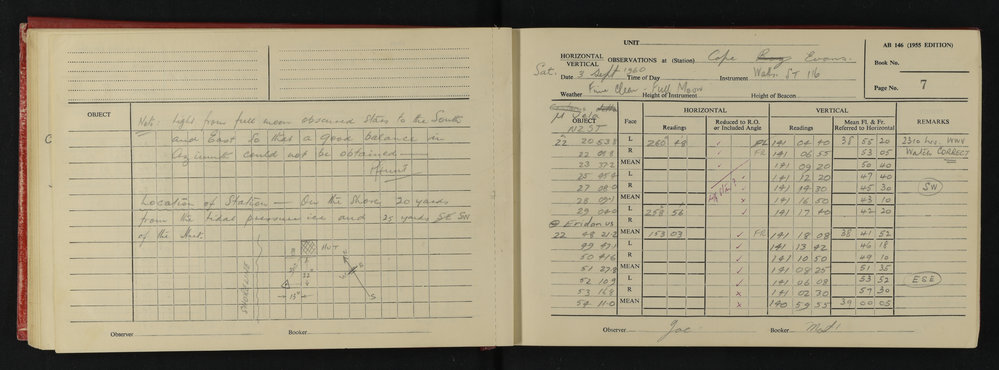 OBJECT
Note: Light from full moon obscured stars to the South
and East so that a good balance in
Azimuth could not be obtained —
Location of Station — On the shore, 20 yards
from the tidal pressure ice and 25 yards SE SW
of the Hut.
HUT
SHORELINE
15"
S
Observer
Booker
UNIT
AB 146 (1955 EDITION)
HORIZONTAL
VERTICAL
OBSERVATIONS at (Station) Cape Evans.
Book No.
Sat. Date 3 Sept 1960 Time of Day Instrument ST 116
Page No. 7
Weather Fine Clear - Full Moon Height of Instrument Height of Beacon
μ Vela
OBJECT
NZST
Face
HORIZONTAL
VERTICAL
REMARKS
Readings
Reduced to R.O.
or Included Angle
Readings
Mean Fl. & Fr.
Referred to Horizontal
22 20 53.8 L 260 48 ✓ FL 141 04 40 38 55 20 2310 hrs. WWV
22 09.8 R ✓ FR 141 06 55 53 05 Watch CORRECT
23 37.2 MEAN ✓ 141 09 20 50 40
25 45.4 L ✓ 141 12 20 47 40
27 08.0 R ✓ 141 14 30 45 30 SW
28 09.1 MEAN x 141 16 50 43 10
29 04.0 L 258 56 ✓ 141 17 40 42 20
θ Eridanus R
22 48 21.2 MEAN 153 03 ✓ FR 141 18 08 38 41 52
49 47.1 L ✓ 141 13 42 46 18
50 41.6 R ✓ 141 10 50 49 10
51 27.8 MEAN ✓ 141 08 25 51 35
52 10.9 L ✓ 141 06 08 53 52 ESE
53 16.8 R x 141 02 30 57 30
54 11.0 MEAN x 140 59 55 39 00 05
Observer Joe Booker